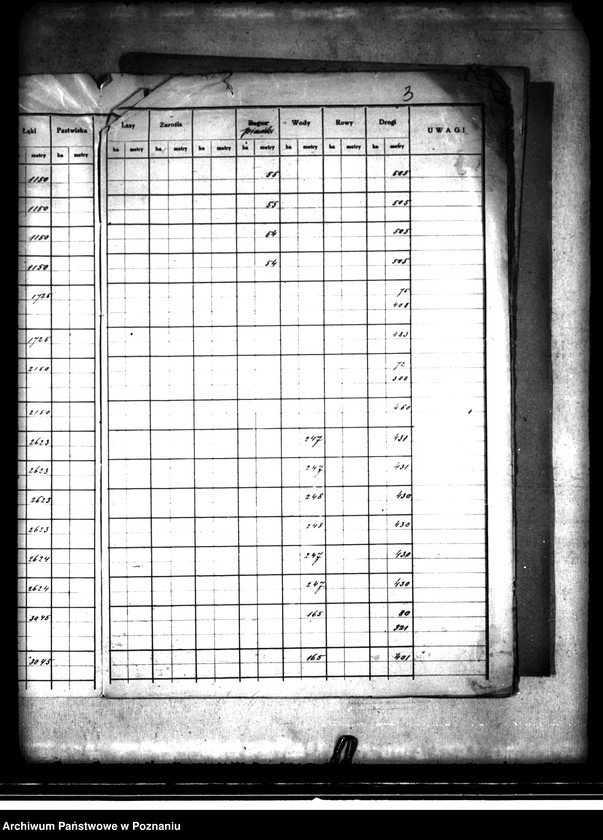 3
Łąki Pastwiska Lasy Zarośla Bagna piaski Wody Rowy Drogi UWAGI
metry ha metry ha metry ha metry ha metry ha metry ha metry ha metry ha metry
1150 55 505
1150 55 505
1150 54 505
1150 54 505
1725 75
408
1725 483
2150 72
388
2150 460
2623 247 431
2623 247 431
2623 248 430
2623 248 430
2624 247 430
2624 247 430
3045 165 80
321
3045 165 401
Archiwum Państwowe w Poznaniu